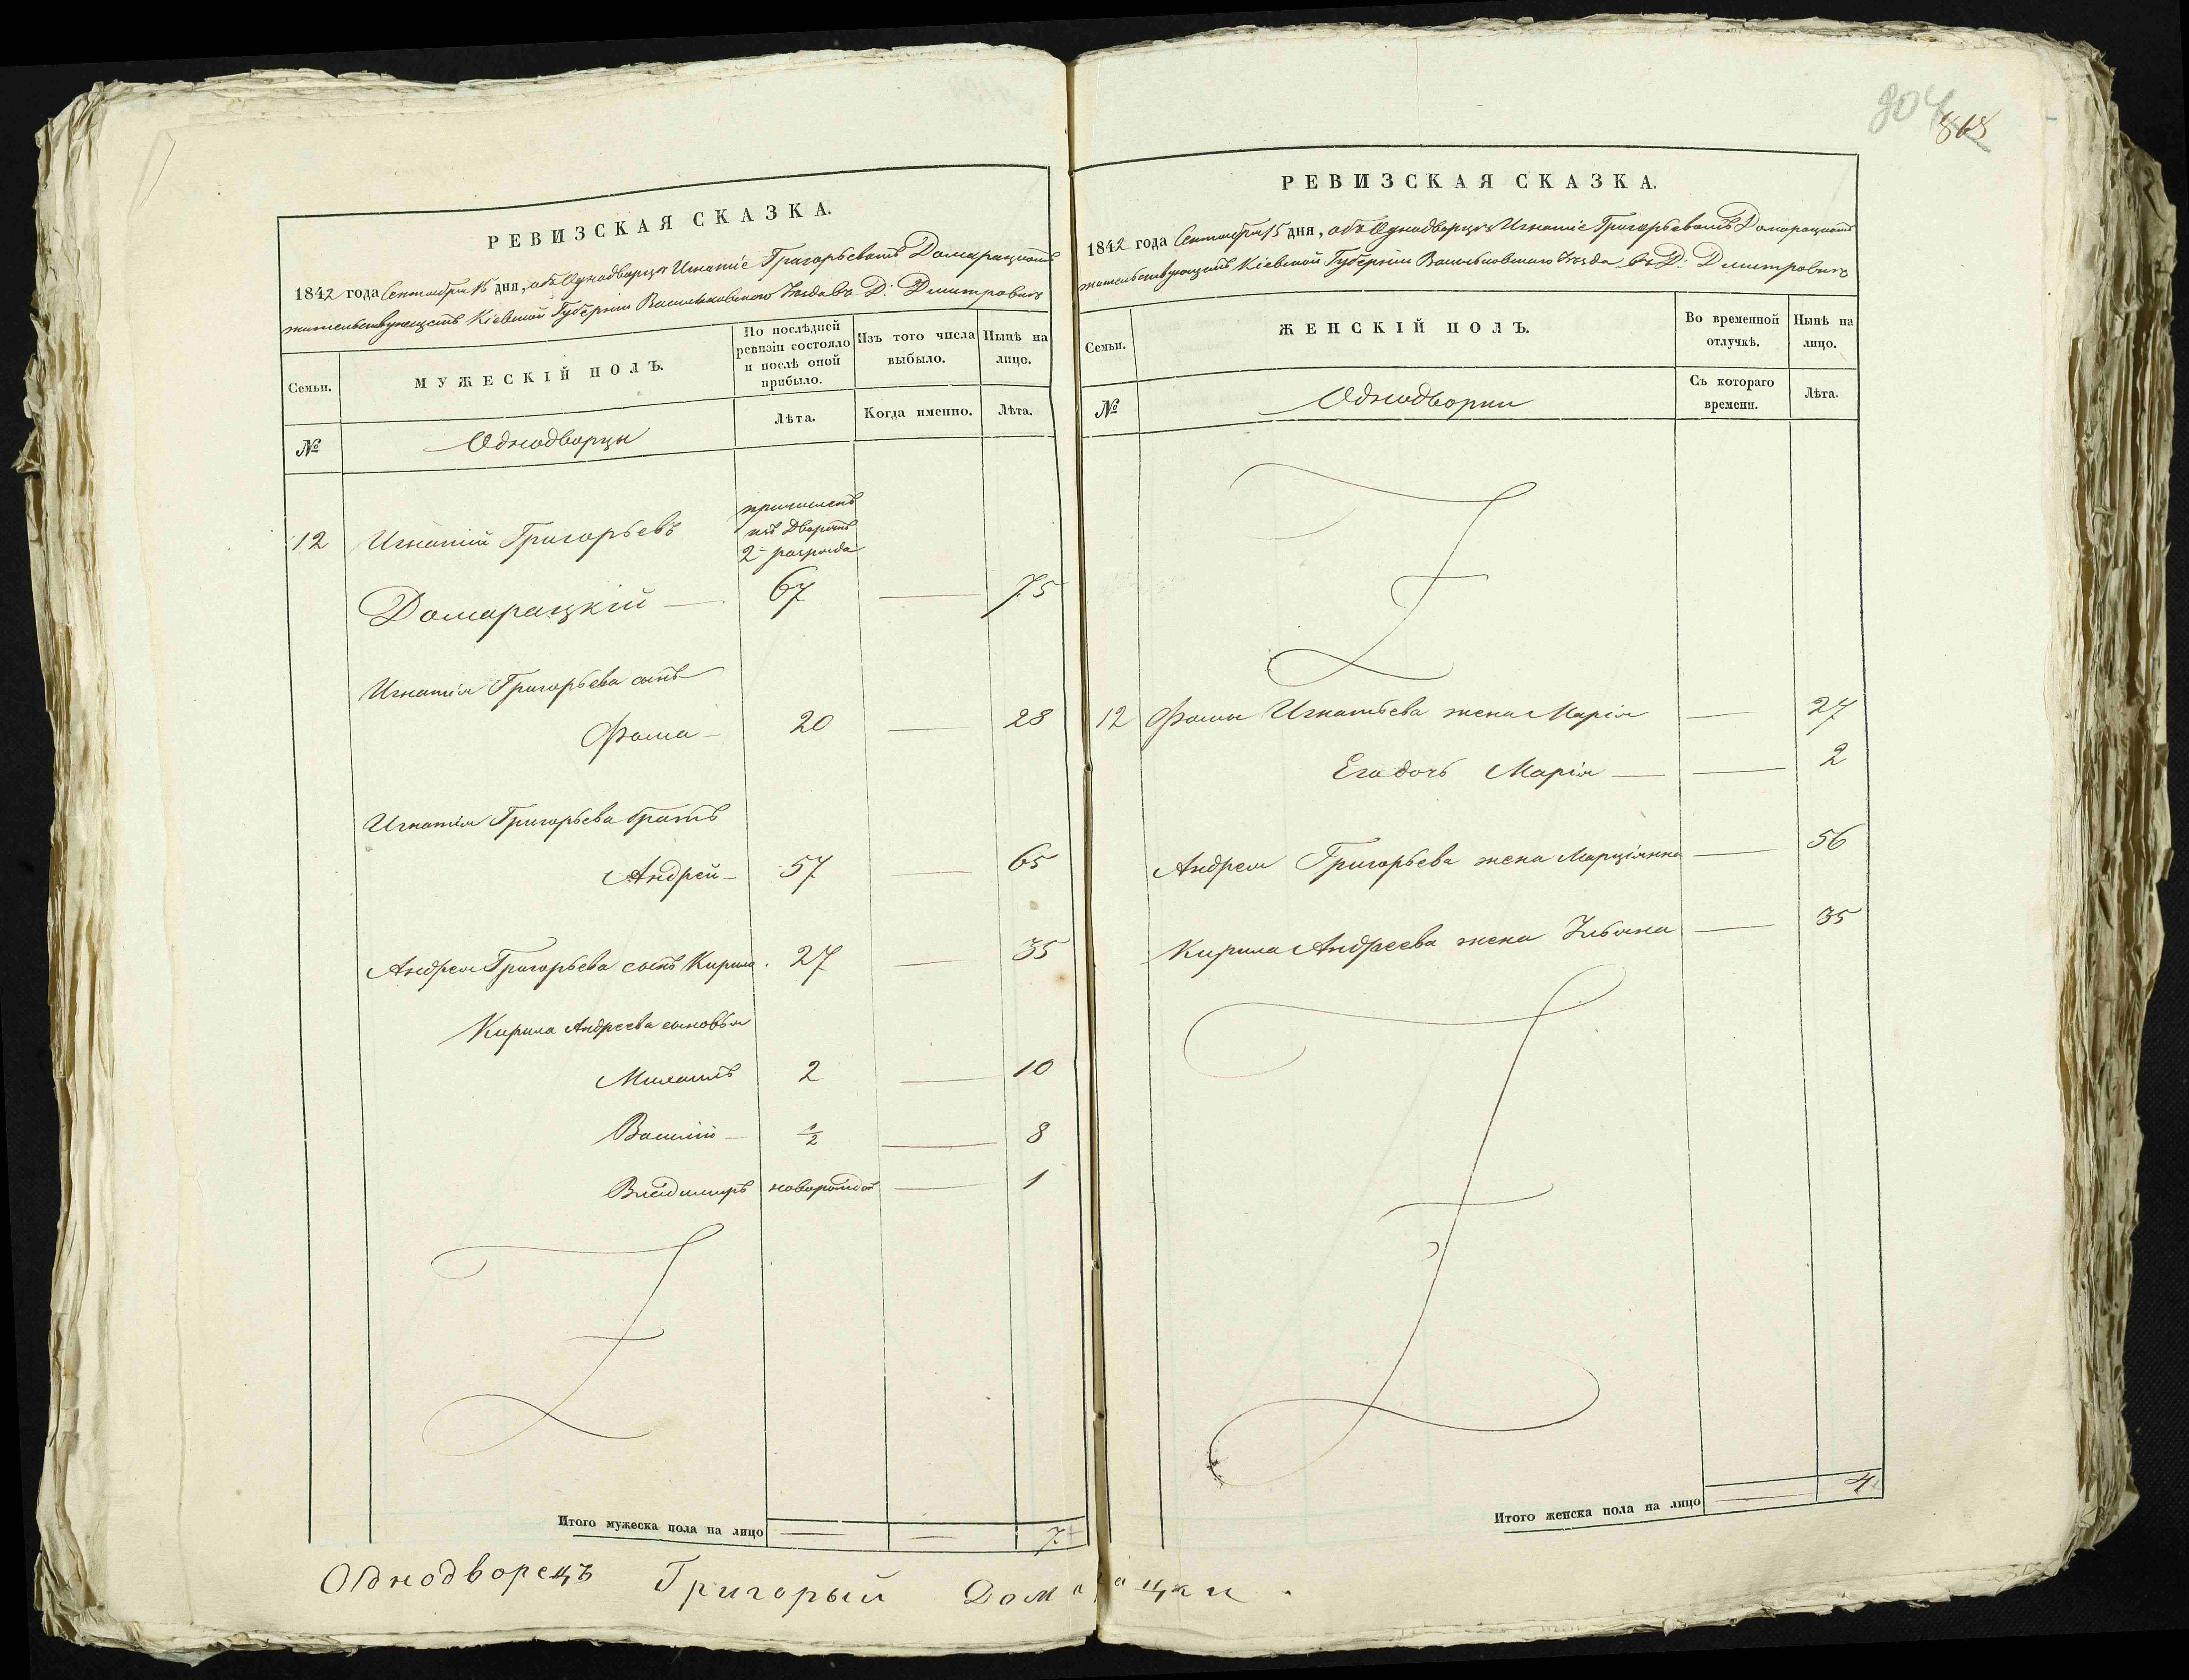 804
868
РЕВИЗСКАЯ СКАЗКА.
1842 года Сентября 15 дня, объ Однодворцѣ Игнатіе Григорьевомъ Домарацкомъ
жительствующемъ Кіевской Губерніи Васильковскаго Уѣзда въ Д. Дмитровкѣ
Семьи.
МУЖЕСКІЙ ПОЛЪ.
По послѣдней ревизіи состояло и послѣ оной прибыло.
Изъ того числа выбыло.
Нынѣ на лицо.
Лѣта.
Когда именно.
Лѣта.
№
Однодворцы
причисленъ
изъ Дворянъ
2 разряда
12 Игнатій Григорьевъ
Домарацкій — 67 — 75
Игнатія Григорьева сынъ
Фома — 20 — 28
Игнатія Григорьева братъ
Андрей — 57 — 65
Андрея Григорьева сынъ Кирила . 27 — 35
Кирила Андреева сыновья
Михаилъ 2 — 10
Василій — 1/2 — 8
Владимиръ новорожден — 1
Итого мужеска пола на лицо — — 7.
Однодворецъ Григорый Домарацки .
РЕВИЗСКАЯ СКАЗКА.
1842 года Сентября 15 дня, объ Однодворцѣ Игнатіе Григорьевомъ Домарацкомъ
жительствующемъ Кіевской Губерніи Васильковскаго Уѣзда въ Д. Дмитровкѣ
Семьи.
ЖЕНСКІЙ ПОЛЪ.
Во временной отлучкѣ.
Нынѣ на лицо.
Съ котораго времени.
Лѣта.
№
Однодворки
12 Фомы Игнатьева жена Марія — 27
Его дочь Марія — — 2
Андрея Григорьева жена Марціянна — 56
Кирила Андреева жена Ульяна — 35
Итого женска пола на лицо — 4